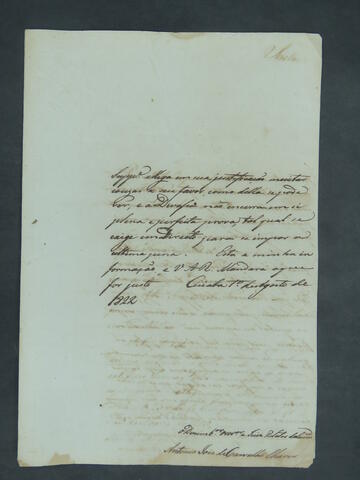 allega em sua justificação muitas
couzas a seu favor, como della se póde
ver, e a Devaça não encerra em si
plena e perfeita prova, tal qual se
exige em Direito para se impor a
ultima pena. Esta a minha in
formação, e V. A. R. Mandará o que
for justo Cuiabá 1º de Agosto de
1822
Antonio José de Carvalho